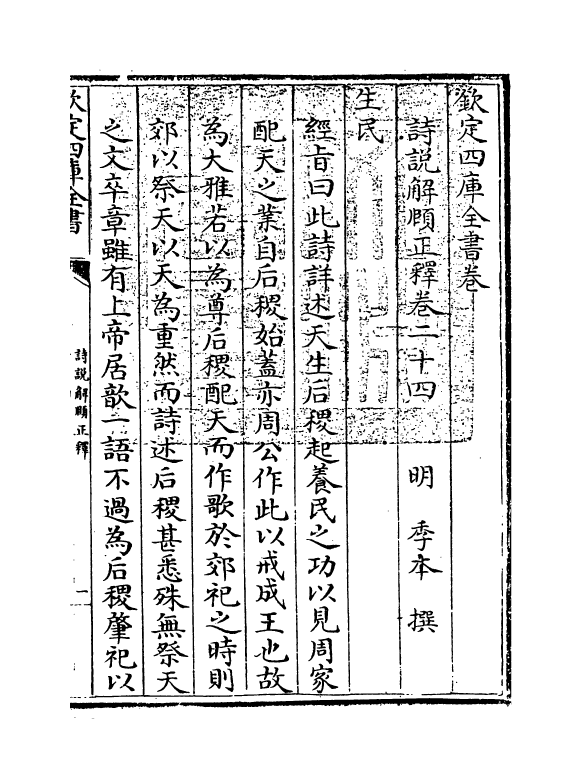 欽定四庫全書卷
詩說解頤正釋卷二十四　明　季本　撰
生民
經旨曰此詩詳述天生后稷起養民之功以見周家
配天之業自后稷始蓋亦周公作此以戒成王也故
為大雅若以為尊后稷配天而作歌於郊祀之時則
郊以祭天以天為重然而詩述后稷甚悉殊無祭天
之文卒章雖有上帝居歆一語不過為后稷肇祀以
欽定四庫全書
詩說解頤正釋